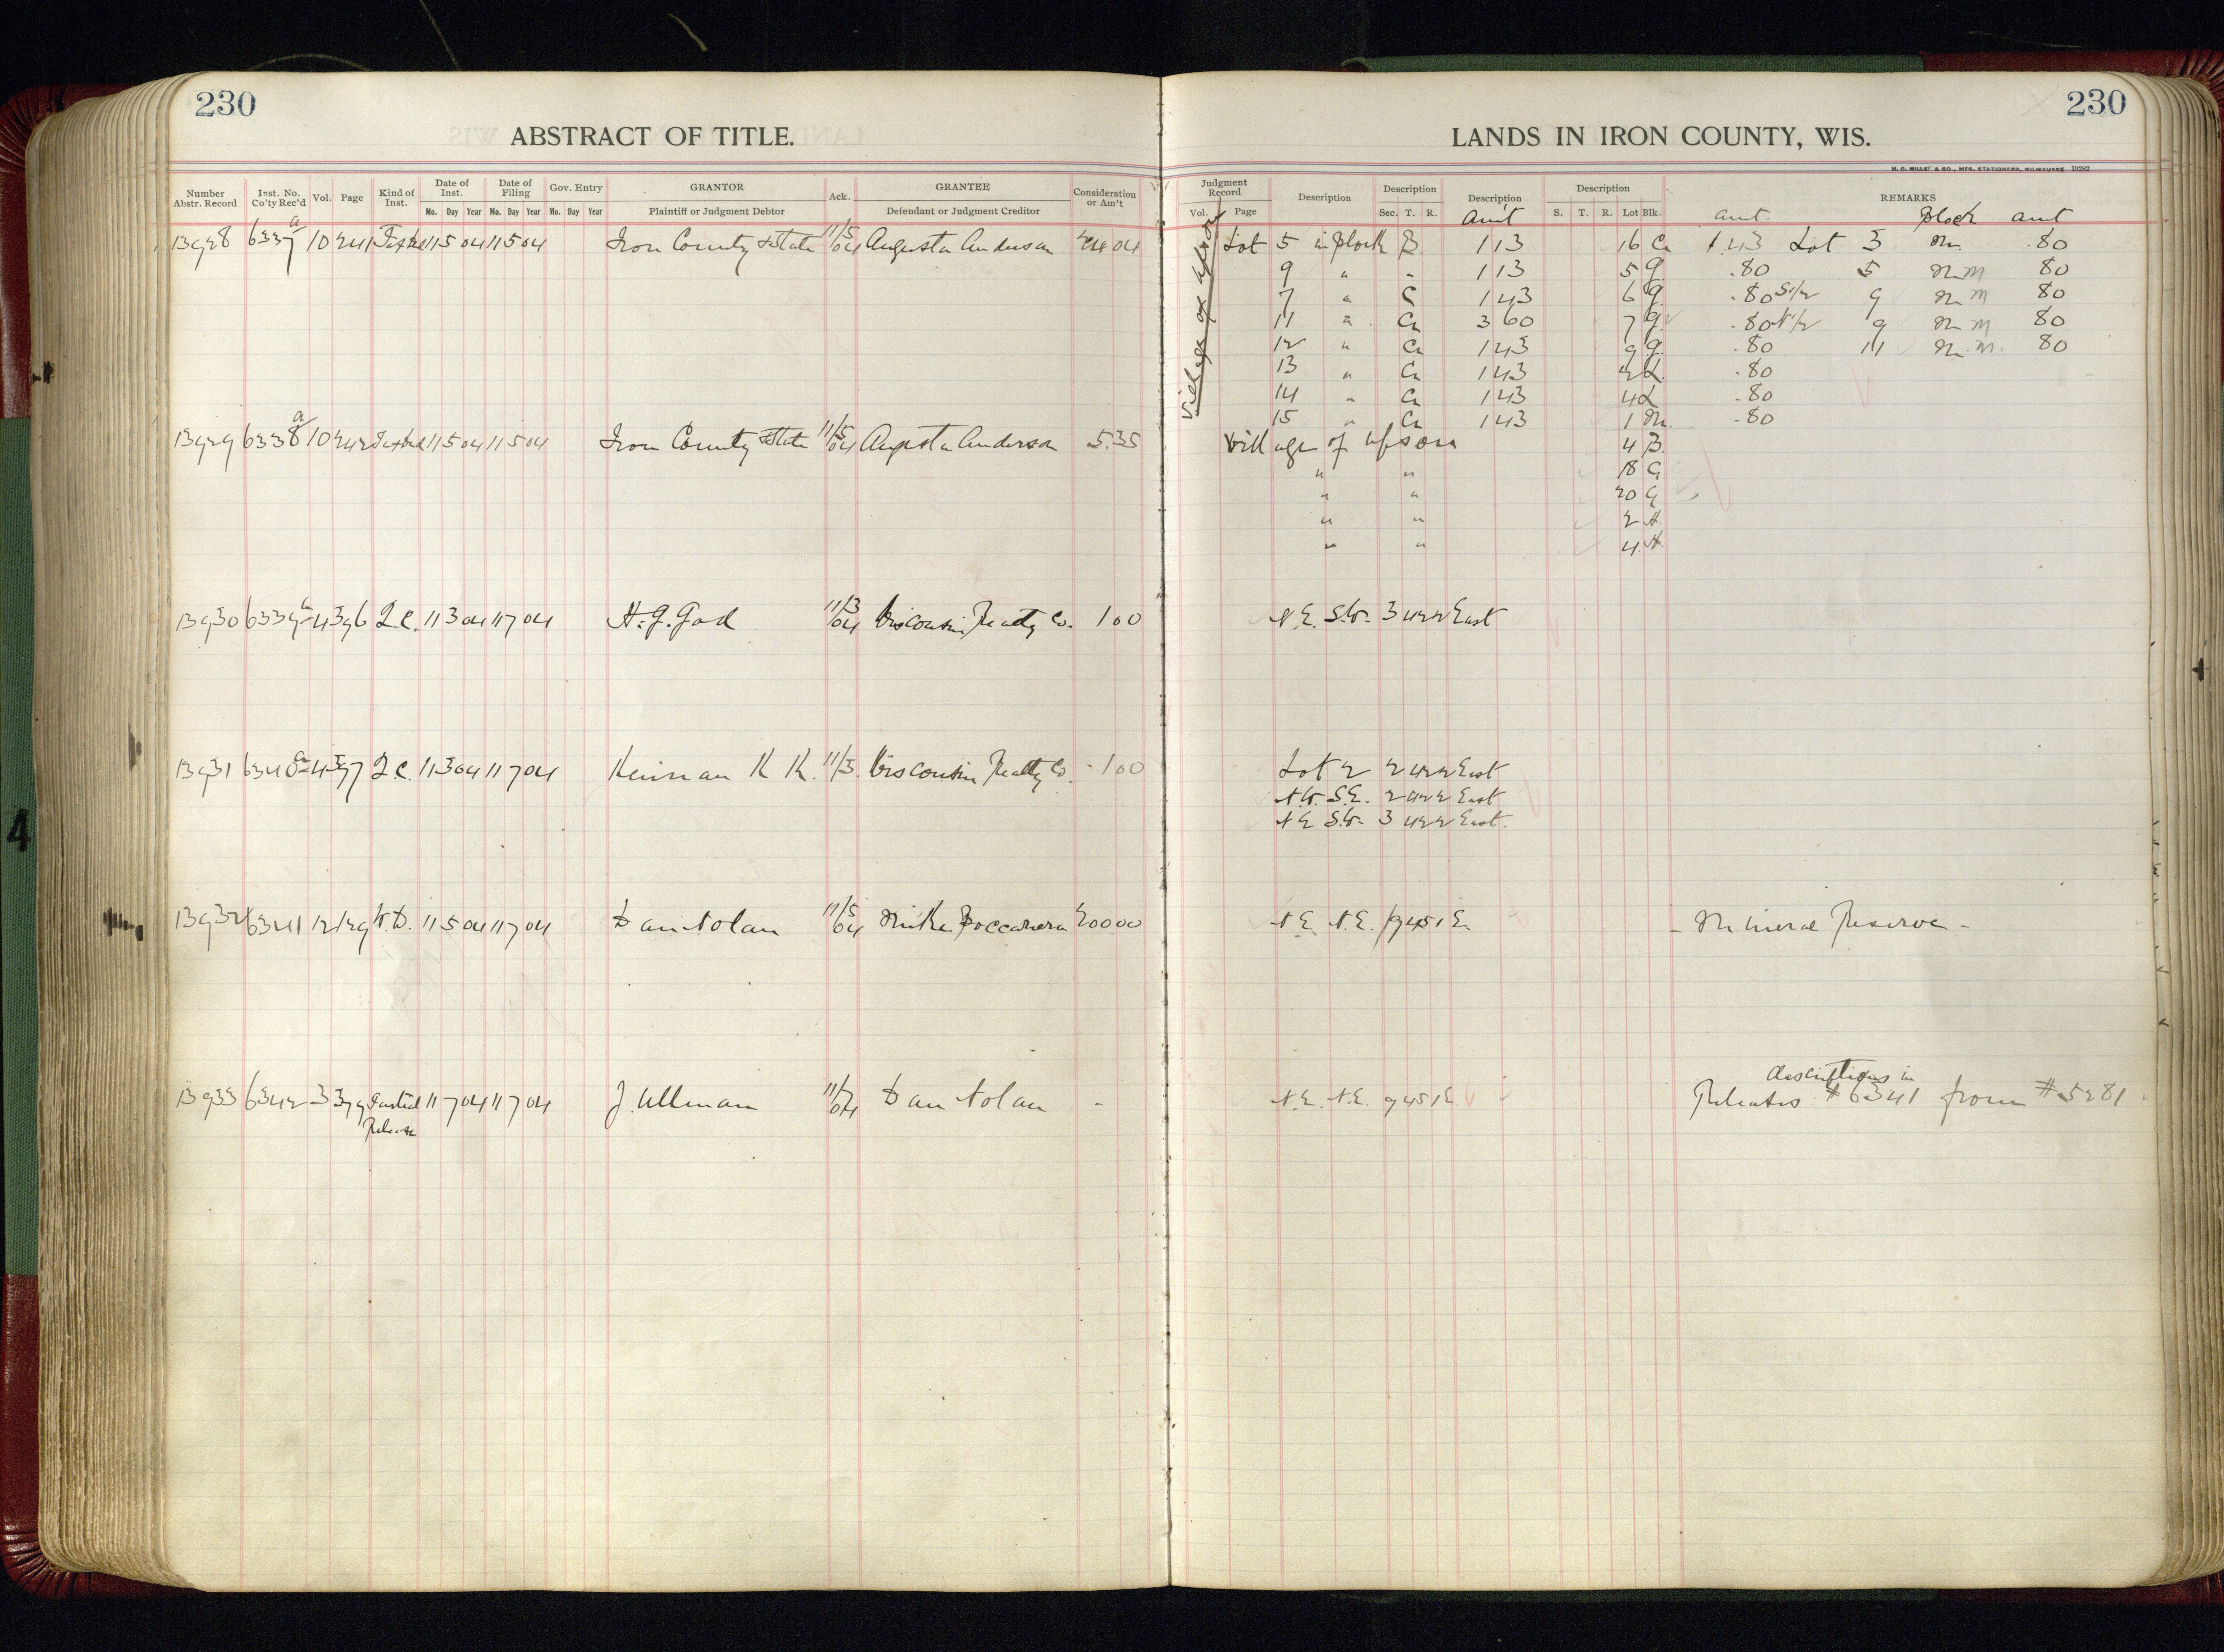 230
230
ABSTRACT OF TITLE.
LANDS IN IRON COUNTY, WIS.
H. C. MILLER & CO., MFG. STATIONERS, MILWAUKEE 19282
Number Abstr. Record Inst. No. Co'ty Rec'd Vol. Page Kind of Inst. Date of Inst. Date of Filing Gov. Entry GRANTOR Ack. GRANTEE Consideration or Am't
Mo. Day Year Mo. Day Year Mo. Day Year Plaintiff or Judgment Debtor Defendant or Judgment Creditor
Judgment Record Description Description Description Description REMARKS
Vol. Page Sec. T. R. Am't S. T. R. Lot Blk. amt. Block amt
13928 6337a 10 241 11 5 04 11 5 04 Iron County & State 11/5/04 Augusta Anderson 24 04
Village of Upson
Lot 5 in Block B. 113 16 C 1.43 Lot 3 M 80
9 " " 113 5 G .80 5 M M 80
7 " C 143 6 G .80 S1/2 9 M M 80
11 " C 360 7 G .80 N1/2 9 M M 80
12 " C 143 9 G .80 11 M M. 80
13 " C 143 2 L .80
14 " C 143 4 L .80
15 " C 143 1 M. .80
13929 6338a 10 242 11 5 04 11 5 04 Iron County & State 11/5/04 Augusta Anderson 5.35 Village of Upson 4 B
" " 18 G
" " 20 G
" " 2 H.
" " 4 H.
13930 6339 4 396 Q.C. 11 3 04 11 7 04 11/3/04 Wisconsin Realty Co. 1 00 N.E. S.W. 3 42 2 East
13931 6340 4 397 Q.C. 11 3 04 11 7 04 Keinan K K. 11/3. Wisconsin Realty Co. 1 00 Lot 2 2 42 2 East
N.W. S.E. 2 42 2 East
N E S.W. 3 42 2 East.
13932 6341 12 129 W.D. 11 5 04 11 7 04 Dan Nolan 11/5/04 Mike 200 00 N.E. N.E. 9 45 1 E. - Mineral Reserve -
13933 6342 3 379 Partial Release 11 7 04 11 7 04 J. Ullman 11/7/04 Dan Nolan - N.E. N.E. 9 45 1 E.
descriptions in
Releases #6341 from #5281
4